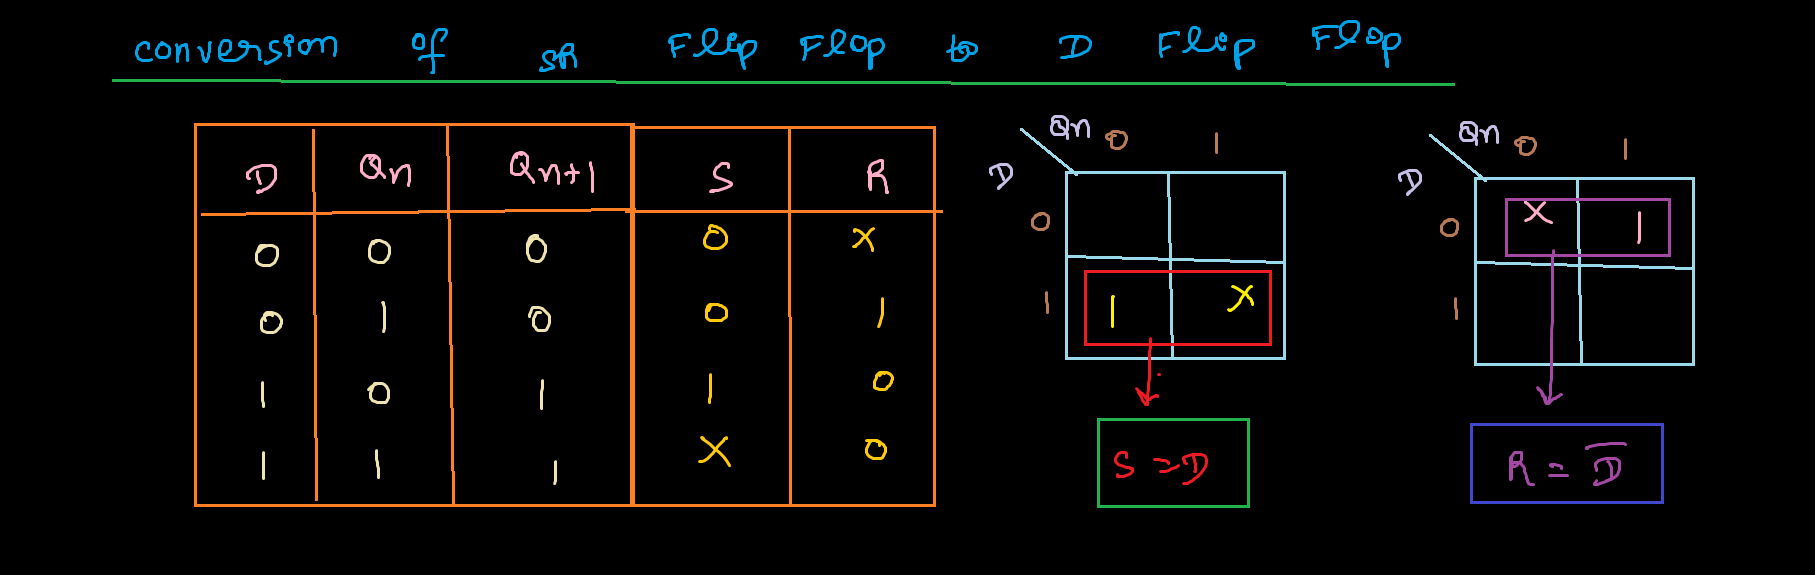 conversion of SR Flip Flop to D Flip Flop
D Qn Qn+1 S R
0 0 0 0 X
0 1 0 0 1
1 0 1 1 0
1 1 1 X 0
Qn 0 1
D
0
1 1 X
S = D
Qn 0 1
D
0 X 1
1
R = D̅